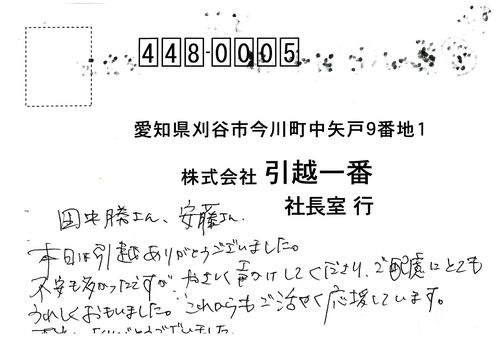 448-0005
愛知県刈谷市今川町中矢戸9番地1
株式会社 引越一番
社長室 行
田中勝さん、安藤さん
本日は引越ありがとうございました。
不安も多かったですが、やさしく声かけしてくださり、ご配慮にとても
うれしくおもいました。これからもご活やく応援しています。